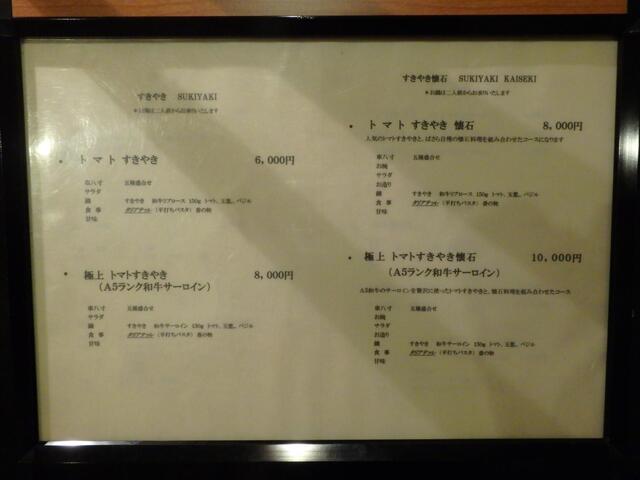 すきやき SUKIYAKI
*お鍋は二人前からお承りいたします
• トマト すきやき 6,000円
八寸 五種盛合せ
サラダ
鍋 すきやき 和牛リブロース 150g トマト、玉葱、バジル
食事 タリアテッレ (平打ちパスタ) 香の物
甘味
• 極上 トマトすきやき 8,000円
(A5ランク和牛サーロイン)
八寸 五種盛合せ
サラダ
鍋 すきやき 和牛サーロイン 150g トマト、玉葱、バジル
食事 タリアテッレ (平打ちパスタ) 香の物
甘味
すきやき懐石 SUKIYAKI KAISEKI
*お鍋は二人前からお承りいたします
• トマト すきやき 懐石 8,000円
人気のトマトすきやきと、ばさら自慢の懐石料理を組み合わせたコースになります
八寸 五種盛合せ
お椀
サラダ
お造り
鍋 すきやき 和牛リブロース 150g トマト、玉葱、バジル
食事 タリアテッレ (平打ちパスタ) 香の物
甘味
• 極上 トマトすきやき懐石 10,000円
(A5ランク和牛サーロイン)
A5和牛のサーロインを贅沢に使ったトマトすきやきと、懐石料理を組み合わせたコース
八寸 五種盛合せ
お椀
サラダ
お造り
鍋 すきやき 和牛サーロイン 150g トマト、玉葱、バジル
食事 タリアテッレ (平打ちパスタ) 香の物
甘味